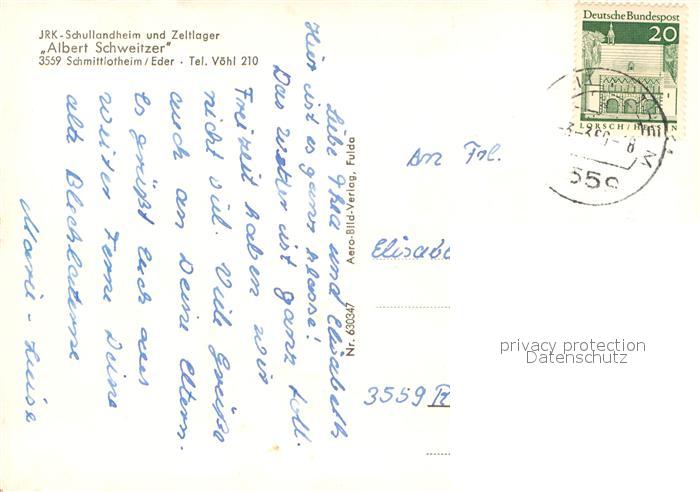 JRK-Schullandheim und Zeltlager
„Albert Schweitzer"
3559 Schmittlotheim/Eder · Tel. Vöhl 210
Liebe und Elisabeth
Hier ist es ganz klasse!
Das Wetter ist ganz toll.
Freizeit haben wir
nicht viel. Viele Grüße
auch an Deine Eltern.
Es grüßt Euch aus
weiter Ferne Deine
alte Blechlaterne
Marie-Luise
Nr. 630347 Aero-Bild-Verlag, Fulda
Deutsche Bundespost
20
LORSCH/HESSEN
559
An Frl.
Elisabe
3559
privacy protection
Datenschutz